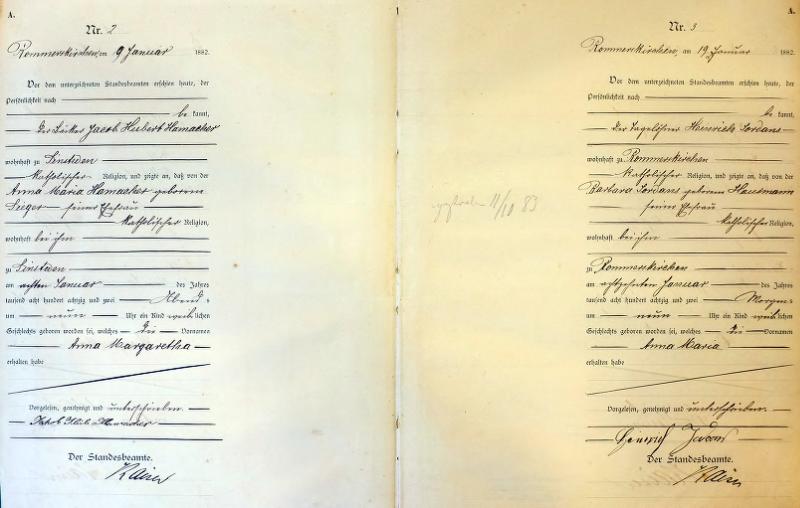 A.
Nr. 2
Rommerskirchen, am 9 Januar 1882.
Vor dem unterzeichneten Standesbeamten erschien heute, der
Persönlichkeit nach
be kannt,
Der Bäcker Jacob Hubert Hamacher
wohnhaft zu Sinsteden
katholischer Religion, und zeigte an, daß von der
Anna Maria Hamacher geborenen
seiner Ehefrau
katholischer Religion,
wohnhaft bei ihm
zu Sinsteden
am achten Januar des Jahres
tausend acht hundert achtzig und zwei Abend=
um neun Uhr ein Kind weiblichen
Geschlechts geboren worden sei, welches die Vornamen
Anna Margaretha
erhalten habe
Vorgelesen, genehmigt und unterschrieben.
Der Standesbeamte.
1
gestorben 11/10 83
A.
Nr. 3
Rommerskirchen, am 19 Januar 1882.
Vor dem unterzeichneten Standesbeamten erschien heute, der
Persönlichkeit nach
be kannt,
der Tagelöhner Heinrich Jordans
wohnhaft zu Rommerskirchen
katholischer Religion, und zeigte an, daß von der
Barbara Jordans geborenen Hausmann
seiner Ehefrau
katholischer Religion,
wohnhaft bei ihm
zu Rommerskirchen
am achtzehnten Januar des Jahres
tausend acht hundert achtzig und zwei Morgen=
um neun Uhr ein Kind weiblichen
Geschlechts geboren worden sei, welches die Vornamen
Anna Maria
erhalten habe
Vorgelesen, genehmigt und unterschrieben.
Heinrich Jordans
Der Standesbeamte.